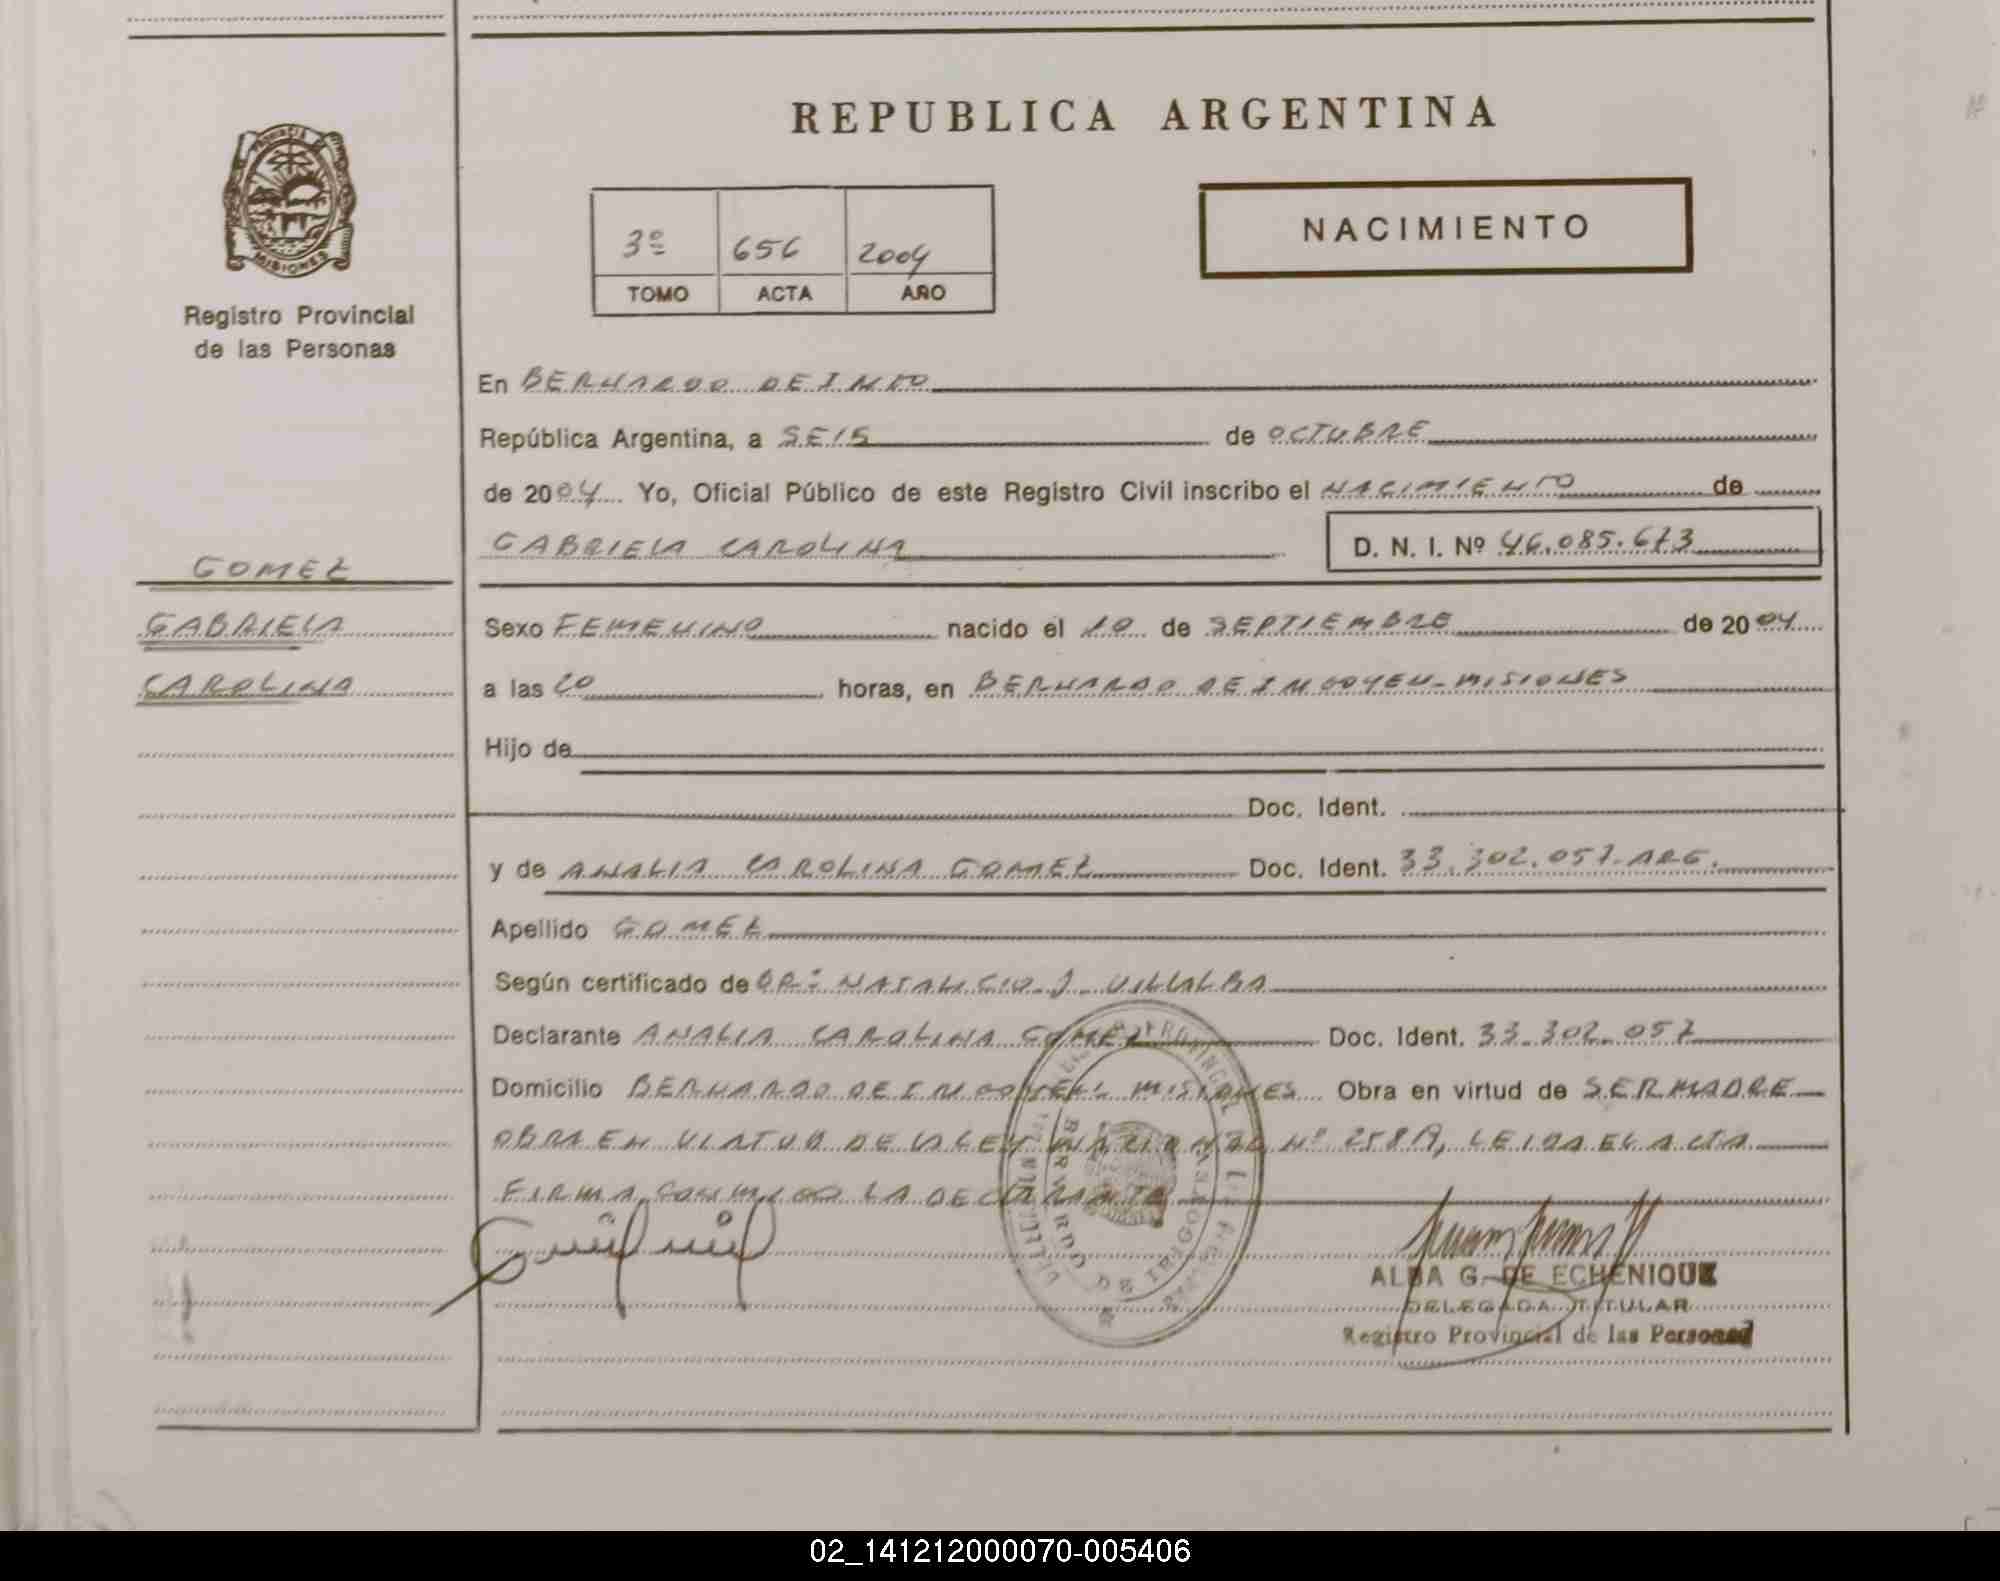 REPUBLICA ARGENTINA
NACIMIENTO
3º 656 2004
TOMO ACTA AÑO
PROVINCIA
MISIONES
Registro Provincial
de las Personas
En BERNARDO DE IRIGO
República Argentina, a SEIS de OCTUBRE
de 2004 Yo, Oficial Público de este Registro Civil inscribo el NACIMIENTO de
GABRIELA CAROLINA D. N. I. Nº 46.085.673
GOMEZ
GABRIELA
CAROLINA
Sexo FEMENINO nacido el 10 de SEPTIEMBRE de 2004
a las 20 horas, en BERNARDO DE IRIGOYEN - MISIONES
Hijo de
Doc. Ident.
y de ANALIA CAROLINA GOMEZ Doc. Ident. 33.302.057. ARG.
Apellido GOMEZ
Según certificado de DR: NATALICIO J. VILLALBA
Declarante ANALIA CAROLINA GOMEZ Doc. Ident. 33.302.057
Domicilio BERNARDO DE IRIGOYEN MISIONES Obra en virtud de SER MADRE
OBRA EN VIRTUD DE LA LEY NACIONAL Nº LEIDA EL ACTA
FIRMA CONMIGO LA DECLARANTE
BERNARDO DE IRIGOYEN
ALBA G. DE ECHENIQUE
DELEGADA TITULAR
Registro Provincial de las Personas
02_141212000070-005406